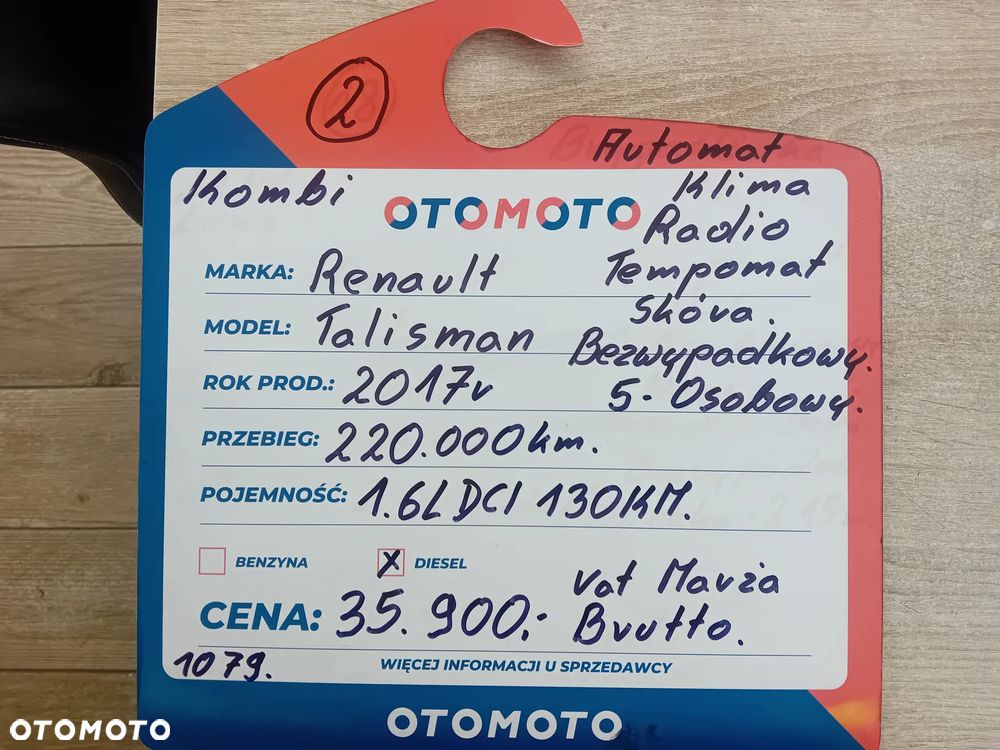 2
Automat
Kombi
OTOMOTO
Klima
Radio
MARKA: Renault
Tempomat
Skóra.
MODEL: Talisman
Bezwypadkowy.
ROK PROD.: 2017r
5-Osobowy.
PRZEBIEG: 220.000km.
POJEMNOŚĆ: 1.6L DCI 130KM.
BENZYNA X DIESEL
CENA: 35.900,-
Vat Marża
Brutto.
1079.
WIĘCEJ INFORMACJI U SPRZEDAWCY
OTOMOTO
OTOMOTO